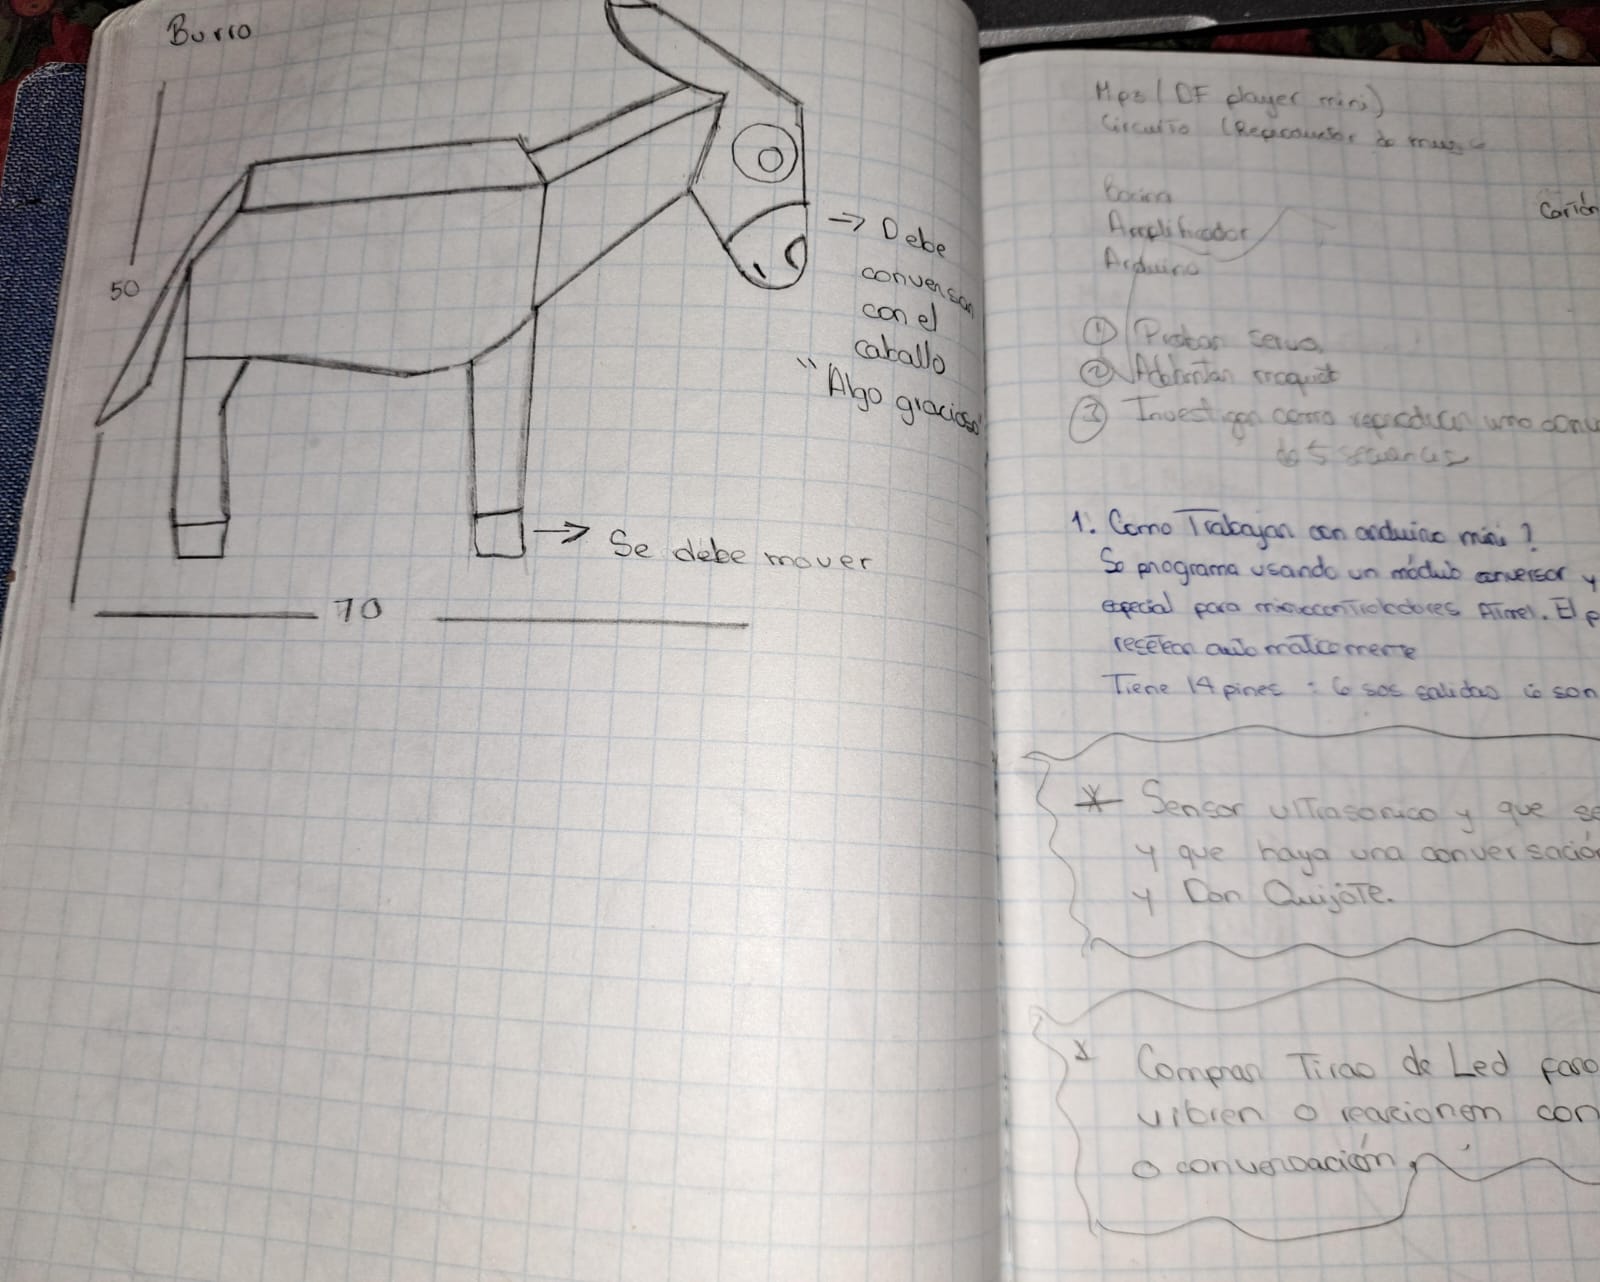 Burro
50
→ Debe
conversar
con el
caballo
"Algo gracioso"
→ Se debe mover
70
Mp3 (DF player mini)
Circuito (Reproductor de
Bocina
Amplificador
Arduino
Cartón
① Probar servo
② Adelantar maquet
③ Investigar como reproducir una conv
de 5 secuencias
1. Como Trabajar con arduino mini?
Se programa usando un módulo conversor y
especial para microcontroladores ATmel. El p
resetear automaticamente
Tiene 14 pines : 6 sos salidas 6 son
* Sensor ulTrasonico y que se
y que haya una conversación
y Don QuijoTe.
* Comprar Tiras de Led para
vibren o reacionen con
o conversación